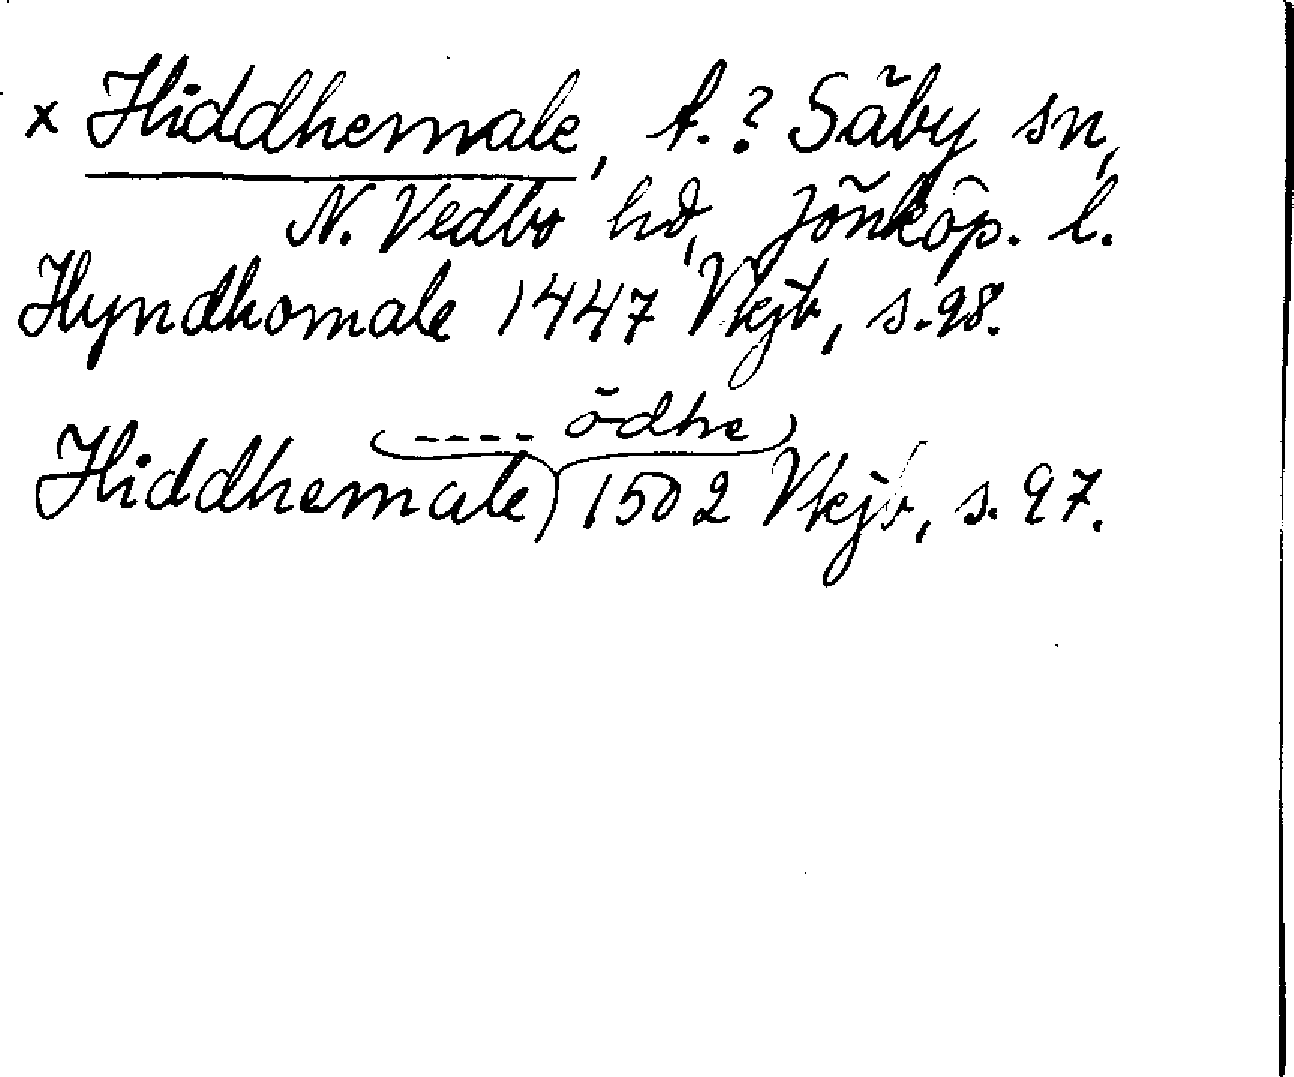 x Hiddhemale, t.? Säby sn,
N. Vedbo hd, Jönköp. l.
Hyndhomale 1447 Vkjb, s. 98.
---- ödhe
Hiddhemale) 1502 Vkjb, s. 97.